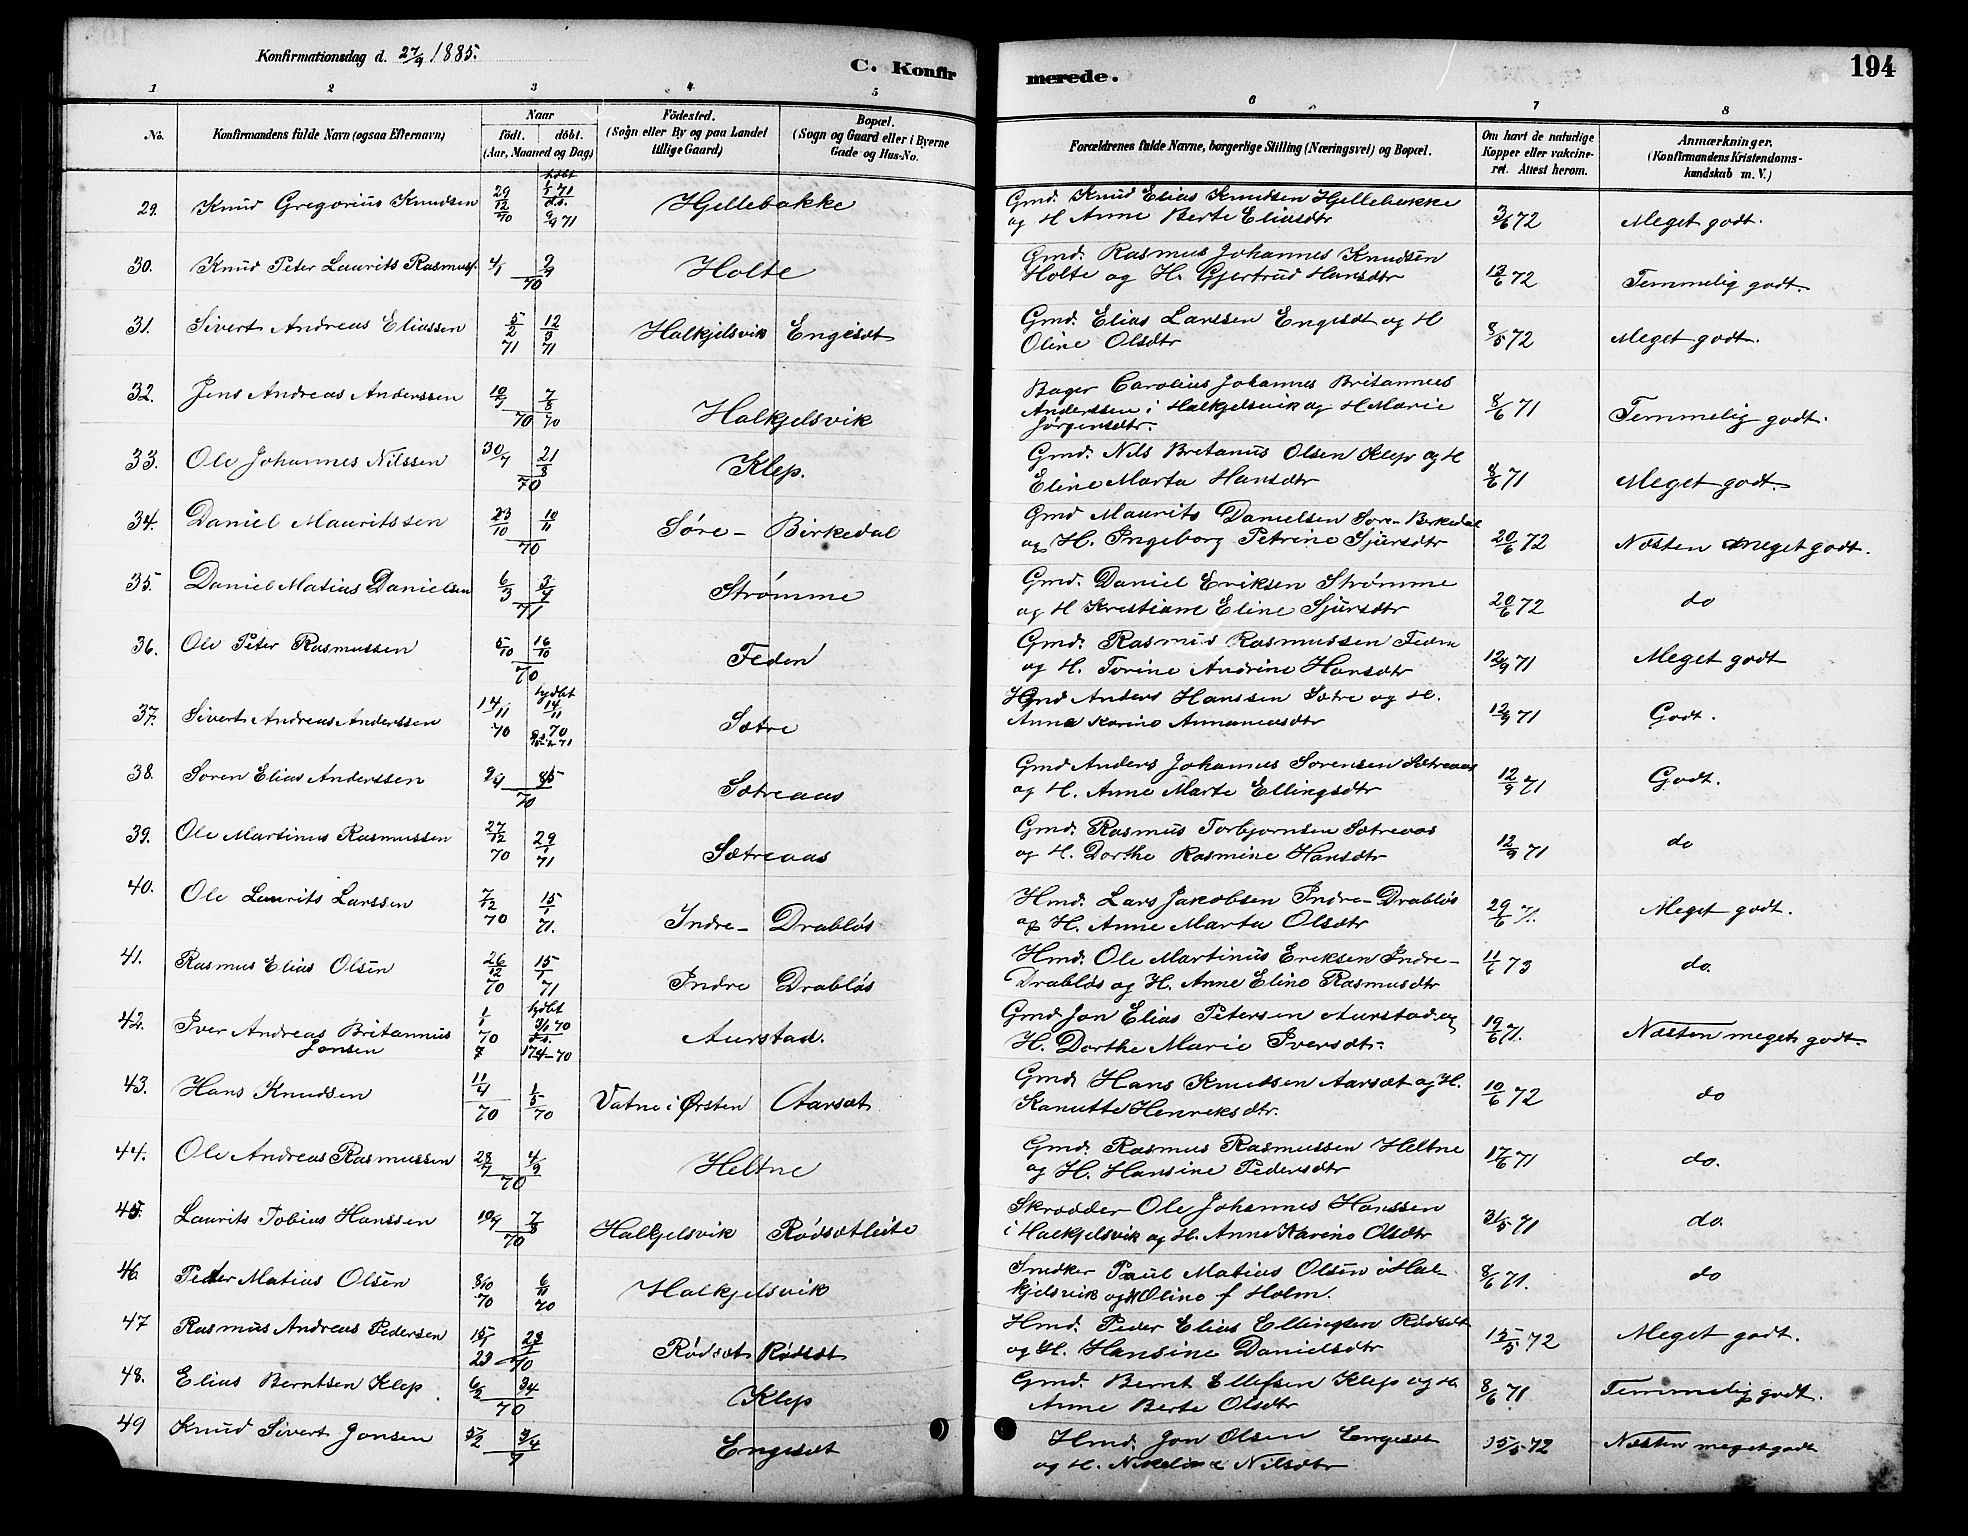 Konfirmationsdag d. 27/9 1885.
C. Konfirmerede.
194
1 2 3 4 5 6 7 8
No.
Konfirmandens fulde Navn (ogsaa Efternavn)
Naar
födt. döbt.
(Aar, Maaned og Dag)
Födested.
(Sogn eller By og paa Landet
tillige Gaard)
Bopæl.
(Sogn og Gaard eller i Byerne
Gade og Hus-No.
Forældrenes fulde Navne, borgerlige Stilling (Næringsvei) og Bopæl.
Om havt de naturlige
Kopper eller vakcine-
ret. Attest herom.
Anmærkninger.
(Konfirmandens Kristendoms-
kundskab m. V.)
29. Knud Gregorius Knudsen 29/12 70 1/5 71 ds. 9/4 71 Hjellebakke Gmd. Knud Elias Knudsen Hjellebakke
og H. Anne Berte Eliasdtr 3/6 72 Meget godt.
30. Knud Peter Laurits Rasmuss. 70 Holte Gmd. Rasmus Johannes Knudsen
Holte og H. Gjertrud Hansdtr 13/6 72 Temmelig godt.
31. Sivert Andreas Eliassen 5/2 71 12/3 71 Halkjelsvik Engeset Gmd. Elias Larssen Engeset og H
Oline Olsdtr 8/5 72 Meget godt.
32. Jens Andreas Anderssen 10/7 70 7/8 70 Halkjelsvik Bager Carolius Johannes Britannus
Anderssen i Halkjelsvik og H Marie
Jørgensdtr. 8/6 71 Temmelig godt.
33. Ole Johannes Nilssen 30/7 21/8 70 Klep. Gmd. Nils Bretanus Olsen Klep og H
Eline Marta Hansdtr 8/6 71 Meget godt.
34. Daniel Mauritssen 23/10 10/11 70 Søre- Birkedal Gmd Maurits Danielsen Søre-Birkedal
og H. Ingeborg Petrine Sjursdtr 20/6 72 Næsten meget godt.
35. Daniel Matias Danielsen 6/3 71 Strømme Gmd. Daniel Eriksen Strømme
og H Kristiane Eline Sjursdtr 20/6 72 do
36. Ole Peter Rasmussen 5/10 16/10 70 Feden Gmd. Rasmus Rasmussen Feden
og H. Torine Andrine Hansdtr 12/9 71 Meget godt
37. Sivert Andreas Anderssen 14/11 70 hjdbt 14/11 70 Sætre Anders Hanssen Sætre og H.
Anne Karine Annaniasdtr 12/9 71 Godt.
38. Søren Elias Anderssen 9/4 70 Sætreaas Gmd Anders Johannes Sørensen Sætreaas
og H. Anne Marte Ellingsdtr 12/9 71 Godt.
39. Ole Martinus Rasmussen 27/12 70 29/1 71 Sætreaas Gmd. Rasmus Torbjørnsen Sætreaas
og H. Dorthe Rasmine Hansdtr 12/9 71 do
40. Ole Laurits Larssen 7/12 70 15/1 71. Indre- Drabløs Hmd. Lars Jakobsen Indre-Drabløs
og H. Anne Marta Olsdtr 29/6 71. Meget godt.
41. Rasmus Elias Olsen 26/12 70 15/1 71 Indre Drabløs Hmd. Ole Martinus Eriksen Indre-
Drabløs og H. Anne Eline Rasmusdtr 11/6 73 do.
42. Iver Andreas Britannus
Jonsen 1/1 70 hjdbt 3/1 70 ds. 17/4-70 Aurstad. Gmd Jon Elias Petersen Aurstad og
H. Dorthe Marie Iversdtr. 19/6 71. Næsten meget godt.
43. Hans Knudsen 11/4 70 1/5 70 Vatne i Ørsten Aarsæt Gmd. Hans Knudsen Aarsæt og H.
Kanutte Henriksdtr. 10/6 72 do
44. Ole Andreas Rasmussen 28/7 4/9 70 Heltne Gmd. Rasmus Rasmussen Heltne
og H. Hansine Pedersdtr 17/6 71 do.
45. Laurits Tobias Hanssen 7/8 70 Halkjelsvik Rødsætleite Skrædder Ole Johannes Hanssen
i Halkjelsvik og H. Anne Karine Olsdtr 31/5 71 do.
46. Petter Matias Olsen 8/10 70 6/11 70 Halkjelsvik Snedker Paul Matias Olsen i Hal-
kjelsvik og H Oline f Holm. 8/6 71. do
47 Rasmus Andreas Pedersen 70 Rødsæt Rødsæt Hmd. Peder Elias Ellingsen Rødsæt
og H. Hansine Danielsdtr 15/5 72 Meget godt.
48. Elias Berntsen Klep 6/2 3/4 70 Klep Gmd. Bernt Ellefsen Klep og H.
Anne Berte Olsdtr 8/6 71 Temmelig godt.
49 Knud Sivert Jonsen 5/2 Engeset Hmd. Jon Olsen Engeset
og H. Nikoline Nilsdtr 15/5 72 Næsten meget godt